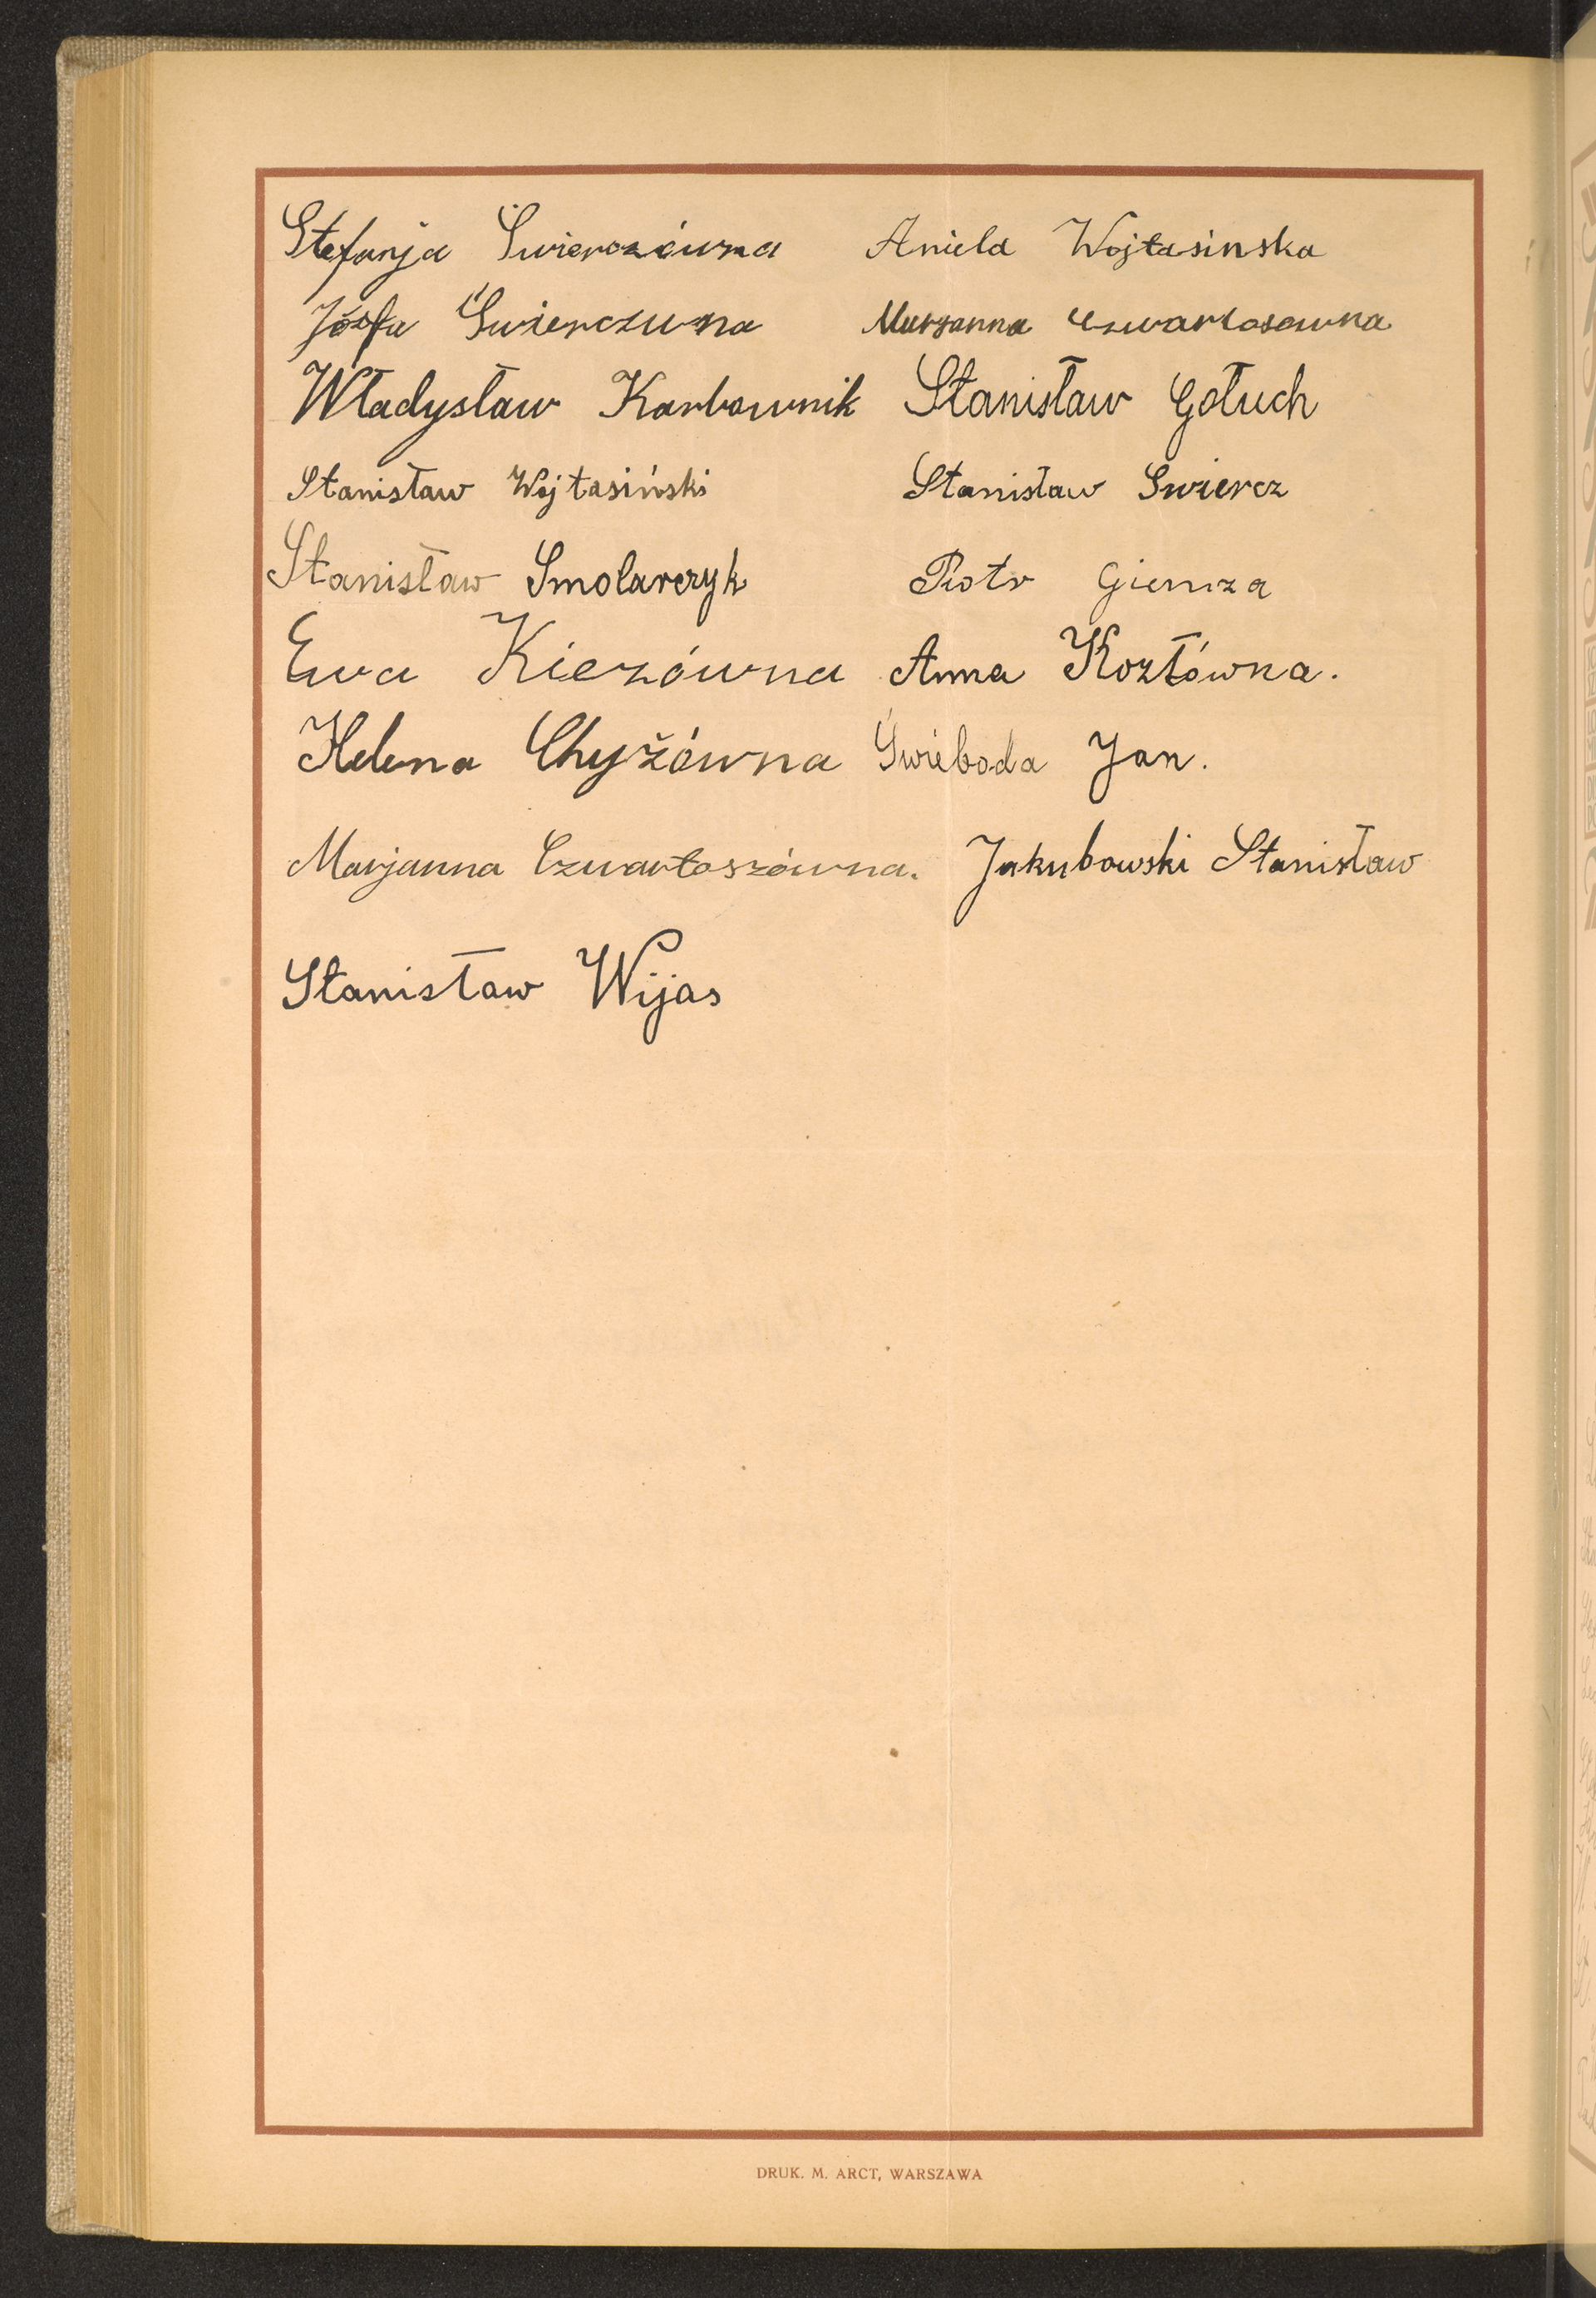 Stefanja Świerczówna Aniela Wojtasinska
Józefa Świerczuwna Marzanna Czwartosowna
Władysław Karbownik Stanisław Gołuch
Stanisław Wojtasiński Stanisław Swiercz
Stanisław Smolarczyk Piotr Giemza
Ewa Kiezówna Anna Kozłówna.
Helena Chyżówna Świeboda Jan.
Marjanna Czwartoszówna. Jakubowski Stanisław
Stanisław Wijas
DRUK. M. ARCT, WARSZAWA